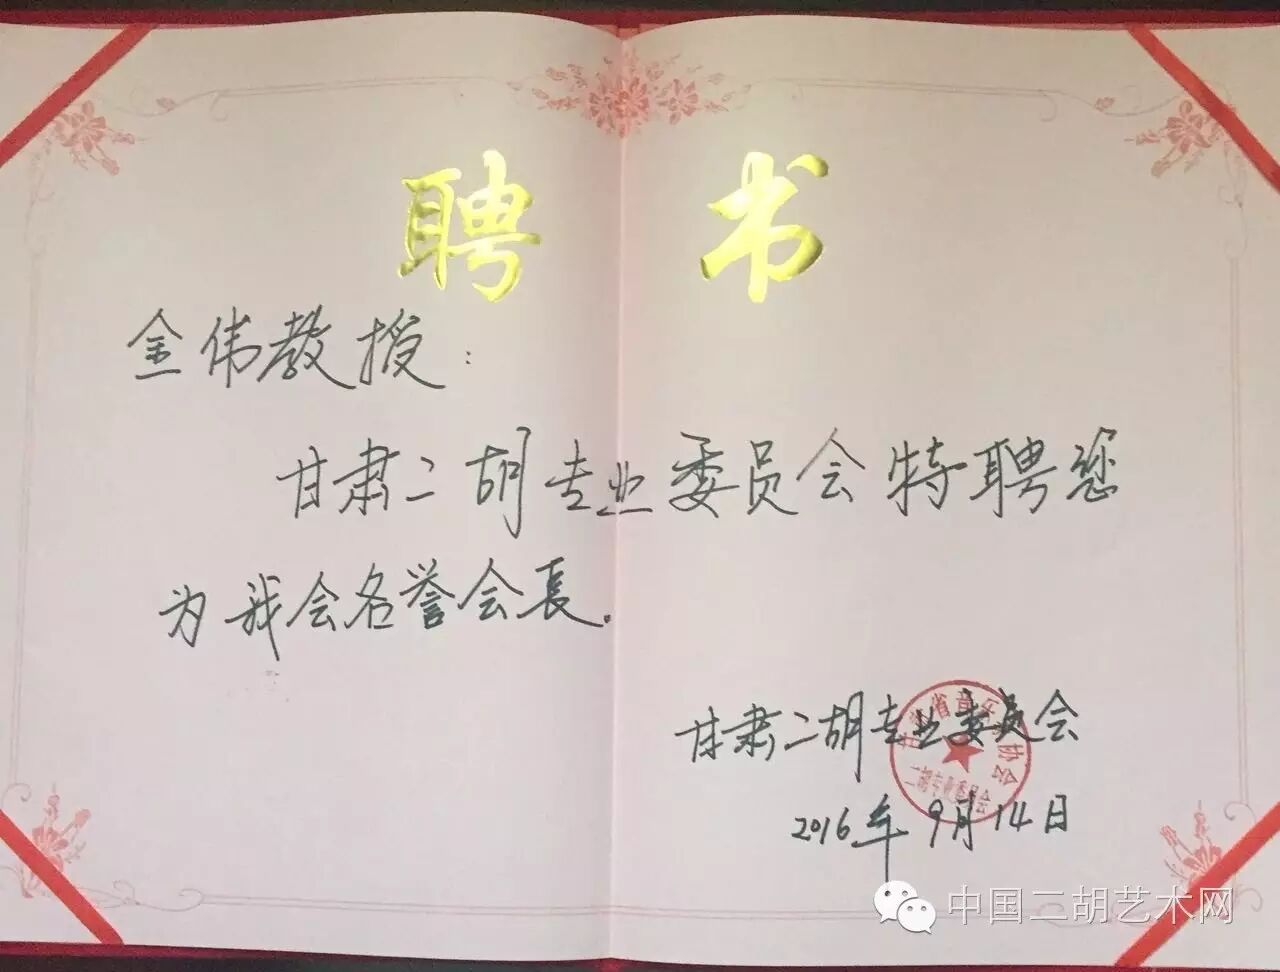 聘 书
金伟教授：
甘肃二胡专业委员会特聘您
为我会名誉会長.
甘肃二胡专业委员会
2016年9月14日
甘肃省音乐家协会
二胡专业委员会
中国二胡艺术网